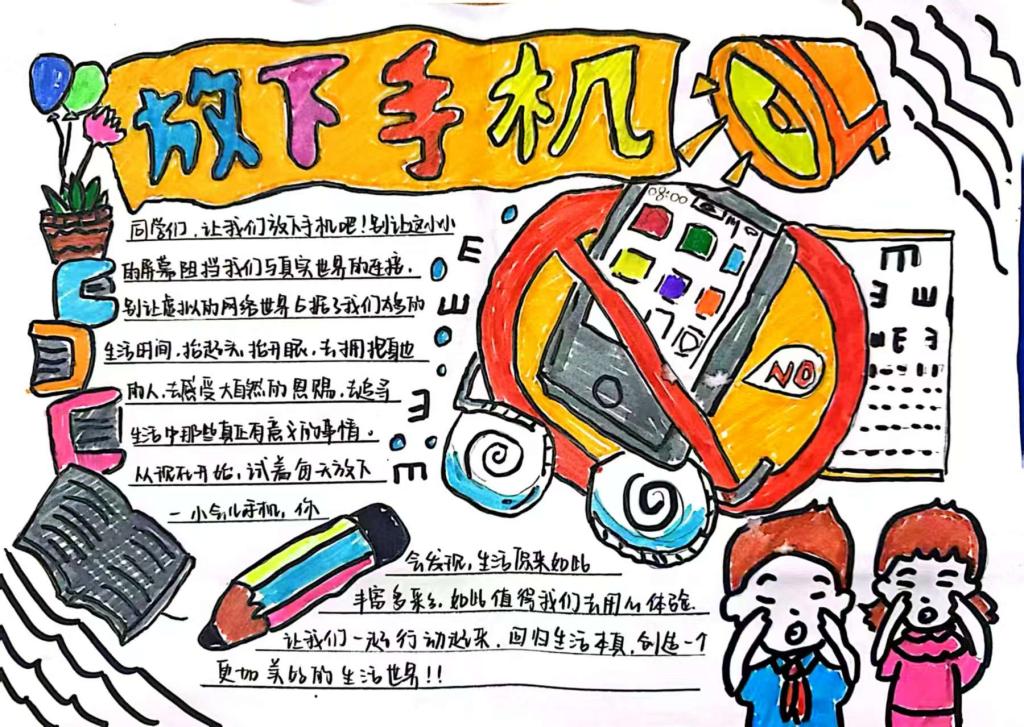 放下手机
同学们，让我们放下手机吧！别让这小小
的屏幕阻挡我们与真实世界的连接，
别让虚拟的网络世界占据了我们太多的
生活时间，抬起头，抬开眼，去拥抱身边
的人，去感受大自然的恩赐，去追寻
生活中那些真正有意义的事情。
从现在开始，试着每天放下
一小会儿手机，你
会发现，生活原来如此
丰富多彩，如此值得我们去用心体验.
让我们一起行动起来，回归生活本真，创造一个
更加美好的生活世界！！
08:00
NO
E
E
E
E
E
E
E
E
E